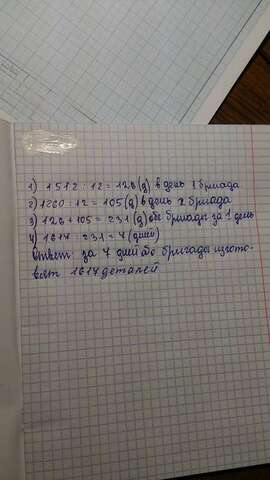 1) 1512 : 12 = 126 (д) в день 1 бригада
2) 1260 : 12 = 105 (д) в день 2 бригада
3) 126 + 105 = 231 (д) обе бригады за 1 день
4) 1617 : 231 = 7 (дней)
Ответ: за 7 дней обе бригады изгото-
вят 1617 деталей